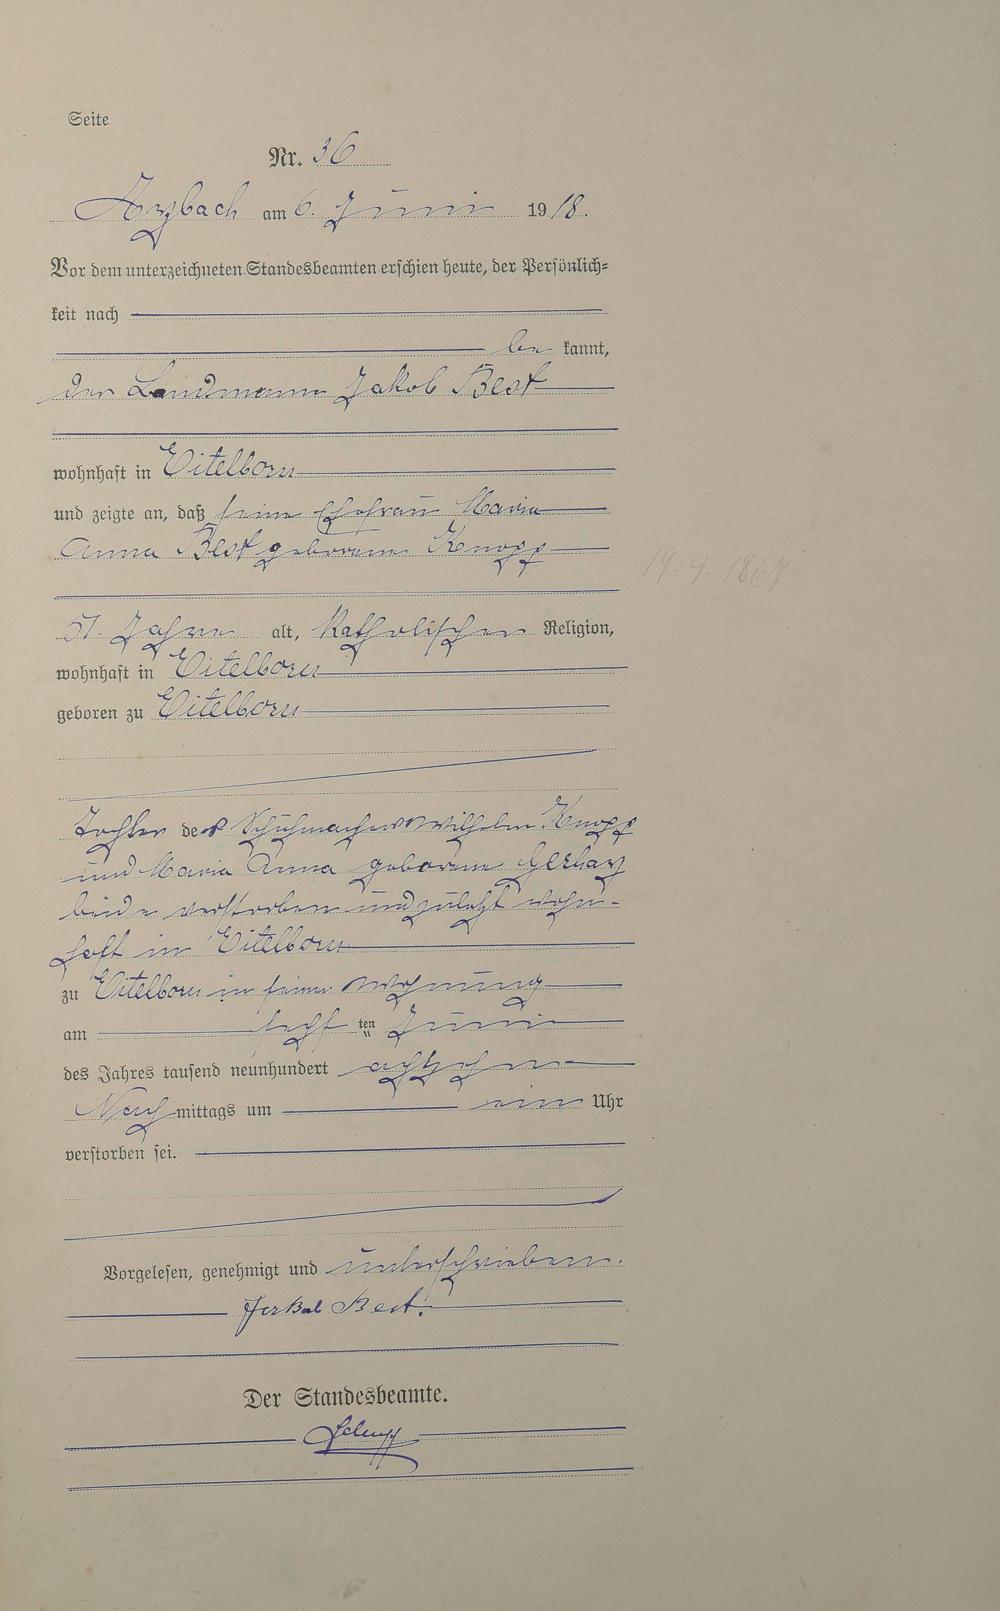 Seite
Nr. 36
Arzbach am 6. Juni 1918.
Vor dem unterzeichneten Standesbeamten erschien heute, der Persönlich=
keit nach
be kannt,
der Landmann Jakob Best
wohnhaft in Eitelborn
und zeigte an, daß seine Ehefrau Maria
Anna Best geborene Knopp
19. 4. 1867
51. Jahre alt, Katholischen Religion,
wohnhaft in Eitelborn
geboren zu Eitelborn
Tochter des Schuhmachers Wilhelm Knopp
und Maria Anna geborene Gerharz
beide verstorben und zuletzt wohn-
haft in Eitelborn
zu Eitelborn in seiner Wohnung
am sechsten Juni
des Jahres tausend neunhundert achtzehn
Nachmittags um ein Uhr
verstorben sei.
Vorgelesen, genehmigt und unterschrieben.
Jakob Best.
Der Standesbeamte.